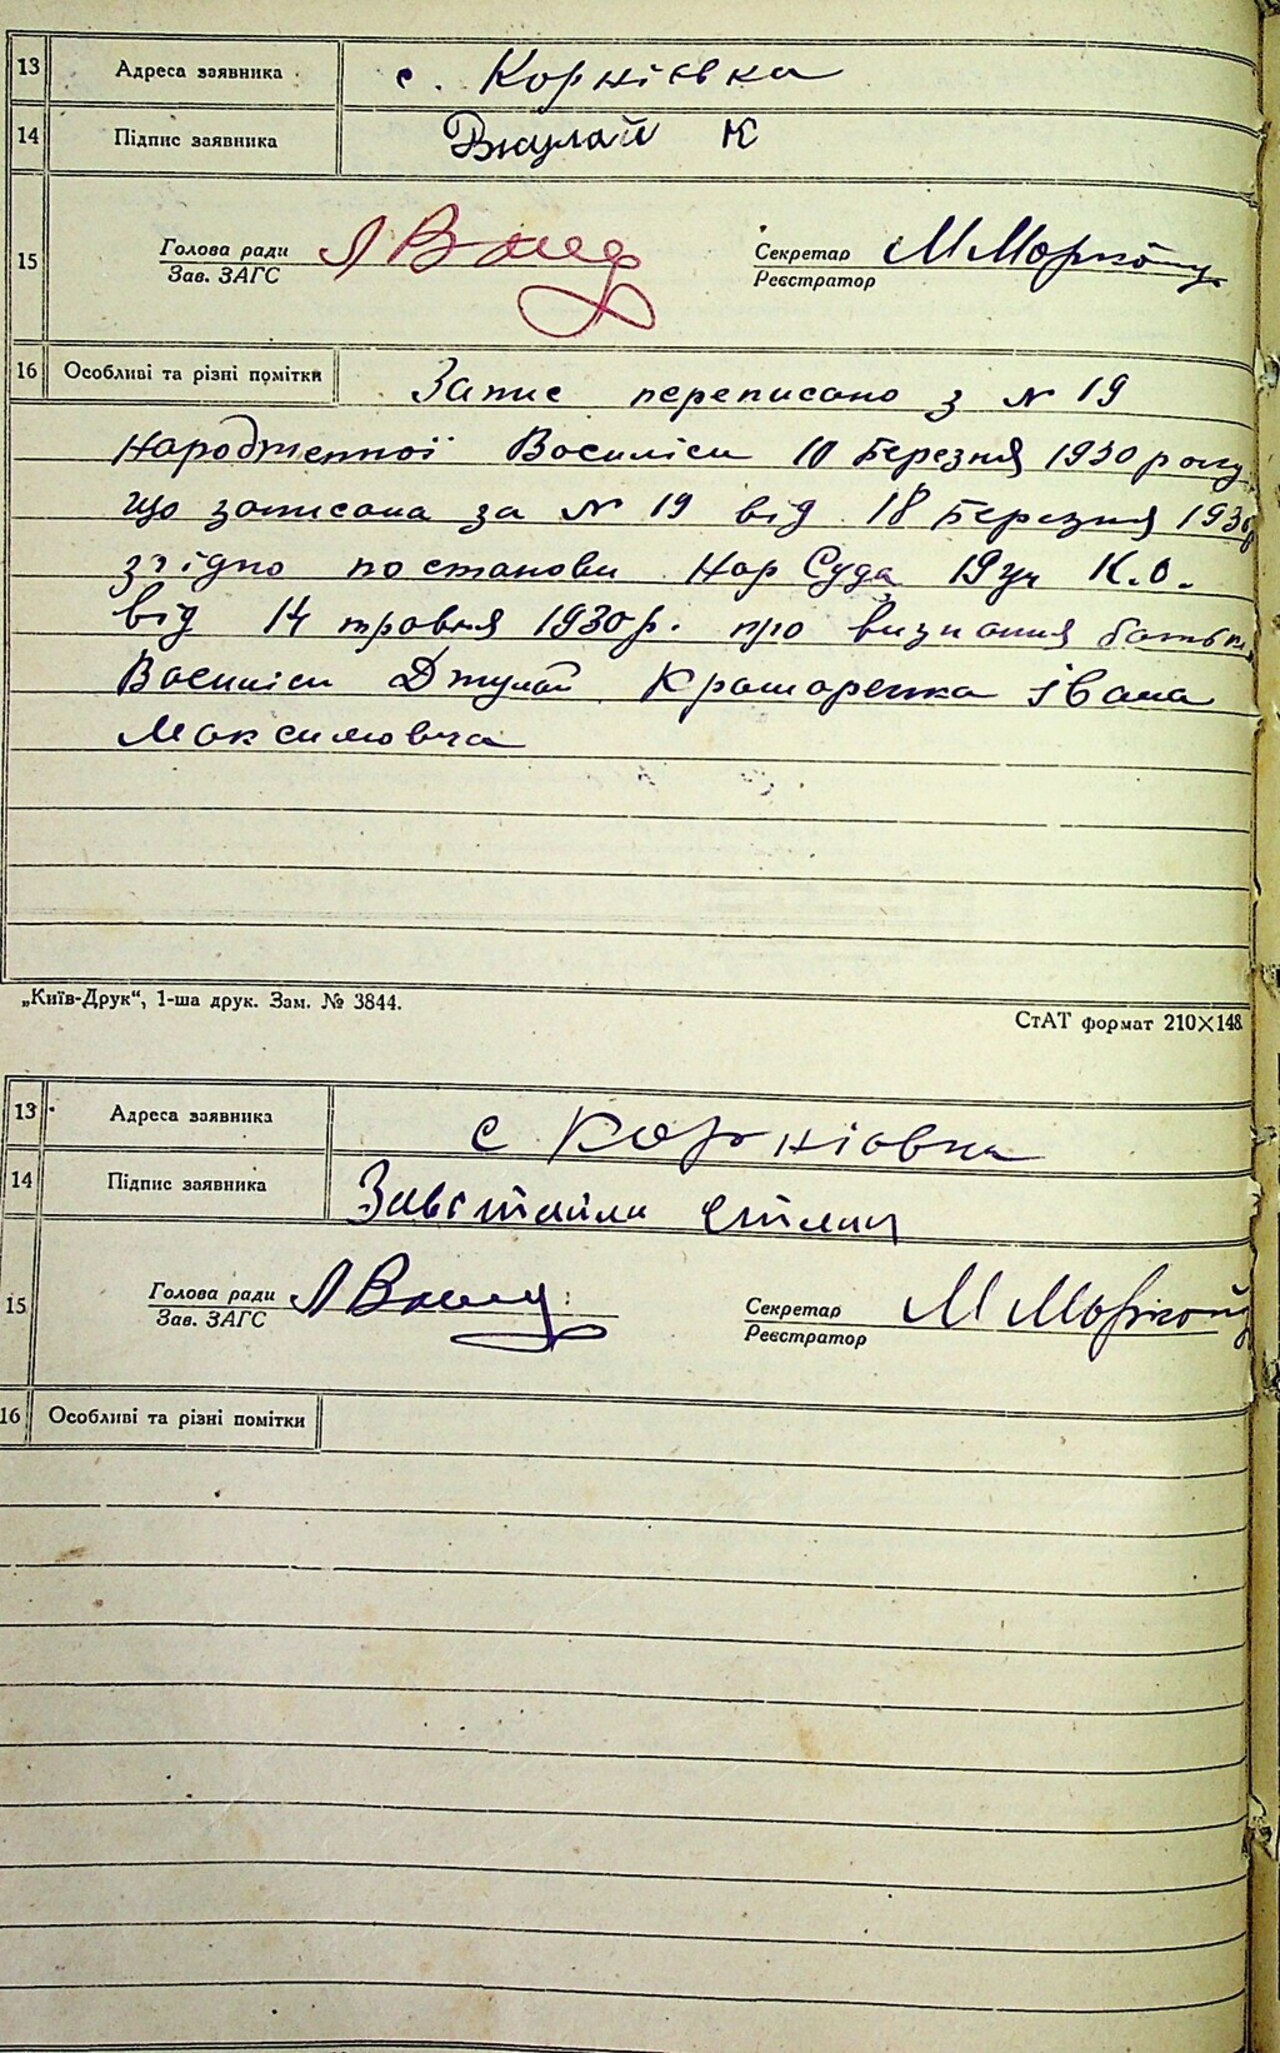 13 Адреса заявника с. Корнієвка
14 Підпис заявника Джулай К
15 Голова ради
Зав. ЗАГС
Секретар
Реєстратор
16 Особливі та різні помітки Запис переписано з № 19
народженної Василіси 10 Березня 1930 року
що записана за № 19 від 18 Березня 1930р
згідно постанови Нар Суда 19 уч К.О.
від 14 травня 1930р. про визнання батьком
Василіси Джулай Крашаренка Івана
Максимовича
„Київ-Друк“, 1-ша друк. Зам. № 3844.
СтАТ формат 210×148.
13 Адреса заявника с Корніовка
14 Підпис заявника
15 Голова ради
Зав. ЗАГС
Секретар
Реєстратор
16 Особливі та різні помітки